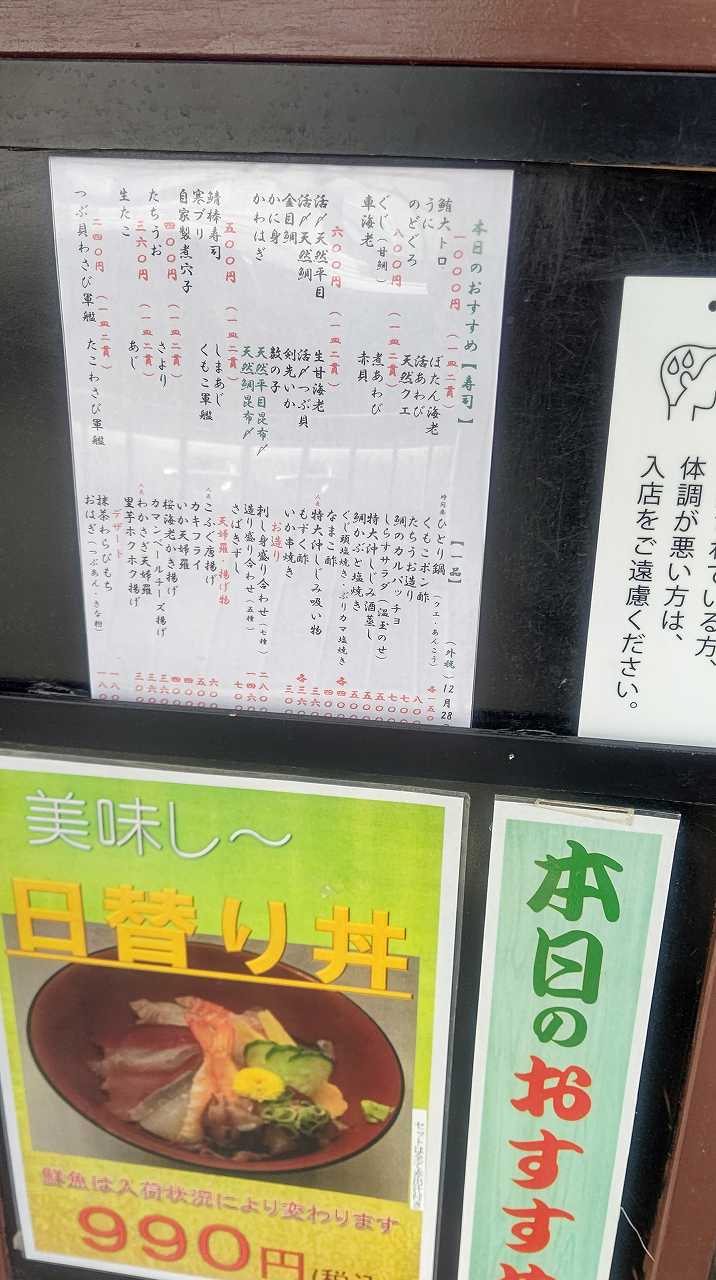 本日のおすすめ【寿司】
一〇〇〇円(一皿二貫)
鮪大トロ ぼたん海老
うに 活あわび
のどぐろ 天然クエ
八〇〇円(一皿二貫)
ぐじ(甘鯛) 煮あわび
車海老 赤貝
六〇〇円(一皿二貫)
活〆天然平目 生甘海老
活〆天然鯛 活〆つぶ貝
金目鯛 剣先いか
かに身 数の子
かわはぎ 天然平目昆布〆
天然鯛昆布〆
五〇〇円(一皿二貫)
鯖棒寿司 しまあじ
寒ブリ くもこ軍艦
自家製煮穴子
四〇〇円(一皿二貫)
たちうお さより
三六〇円(一皿二貫)
生たこ あじ
二四〇円(一皿二貫)
つぶ貝わさび軍艦 たこわさび軍艦
【一品】 (外税) 12月28
ひとり鍋(クエ・あんこう) 各一五〇
くもこポン酢 八〇
たちうお造り 七〇
鯛のカルパッチョ
しらすサラダ(温玉のせ)
特大沖しじみ酒蒸し
鯛かぶと塩焼き
ぐじ頭塩焼き・ぶりカマ塩焼き
なまこ酢
人気 特大沖しじみ吸い物
もずく酢
いか串焼き
お造り
刺し身盛り合わせ(七種) 二八〇
造り盛り合わせ(五種) 一四六〇
さばきずし
天婦羅・揚げ物
人気 こふぐ唐揚げ
カキフライ
いか天婦羅
桜海老かき揚げ
カマンベールチーズ揚げ
人気 わかさぎ天婦羅
里芋ホクホク揚げ
デザート
抹茶わらびもち
おはぎ(つぶあん・きな粉)
ている方、
体調が悪い方は、
入店をご遠慮ください。
美味し～
日替り丼
鮮魚は入荷状況により変わります
990円
本日のおすすめ